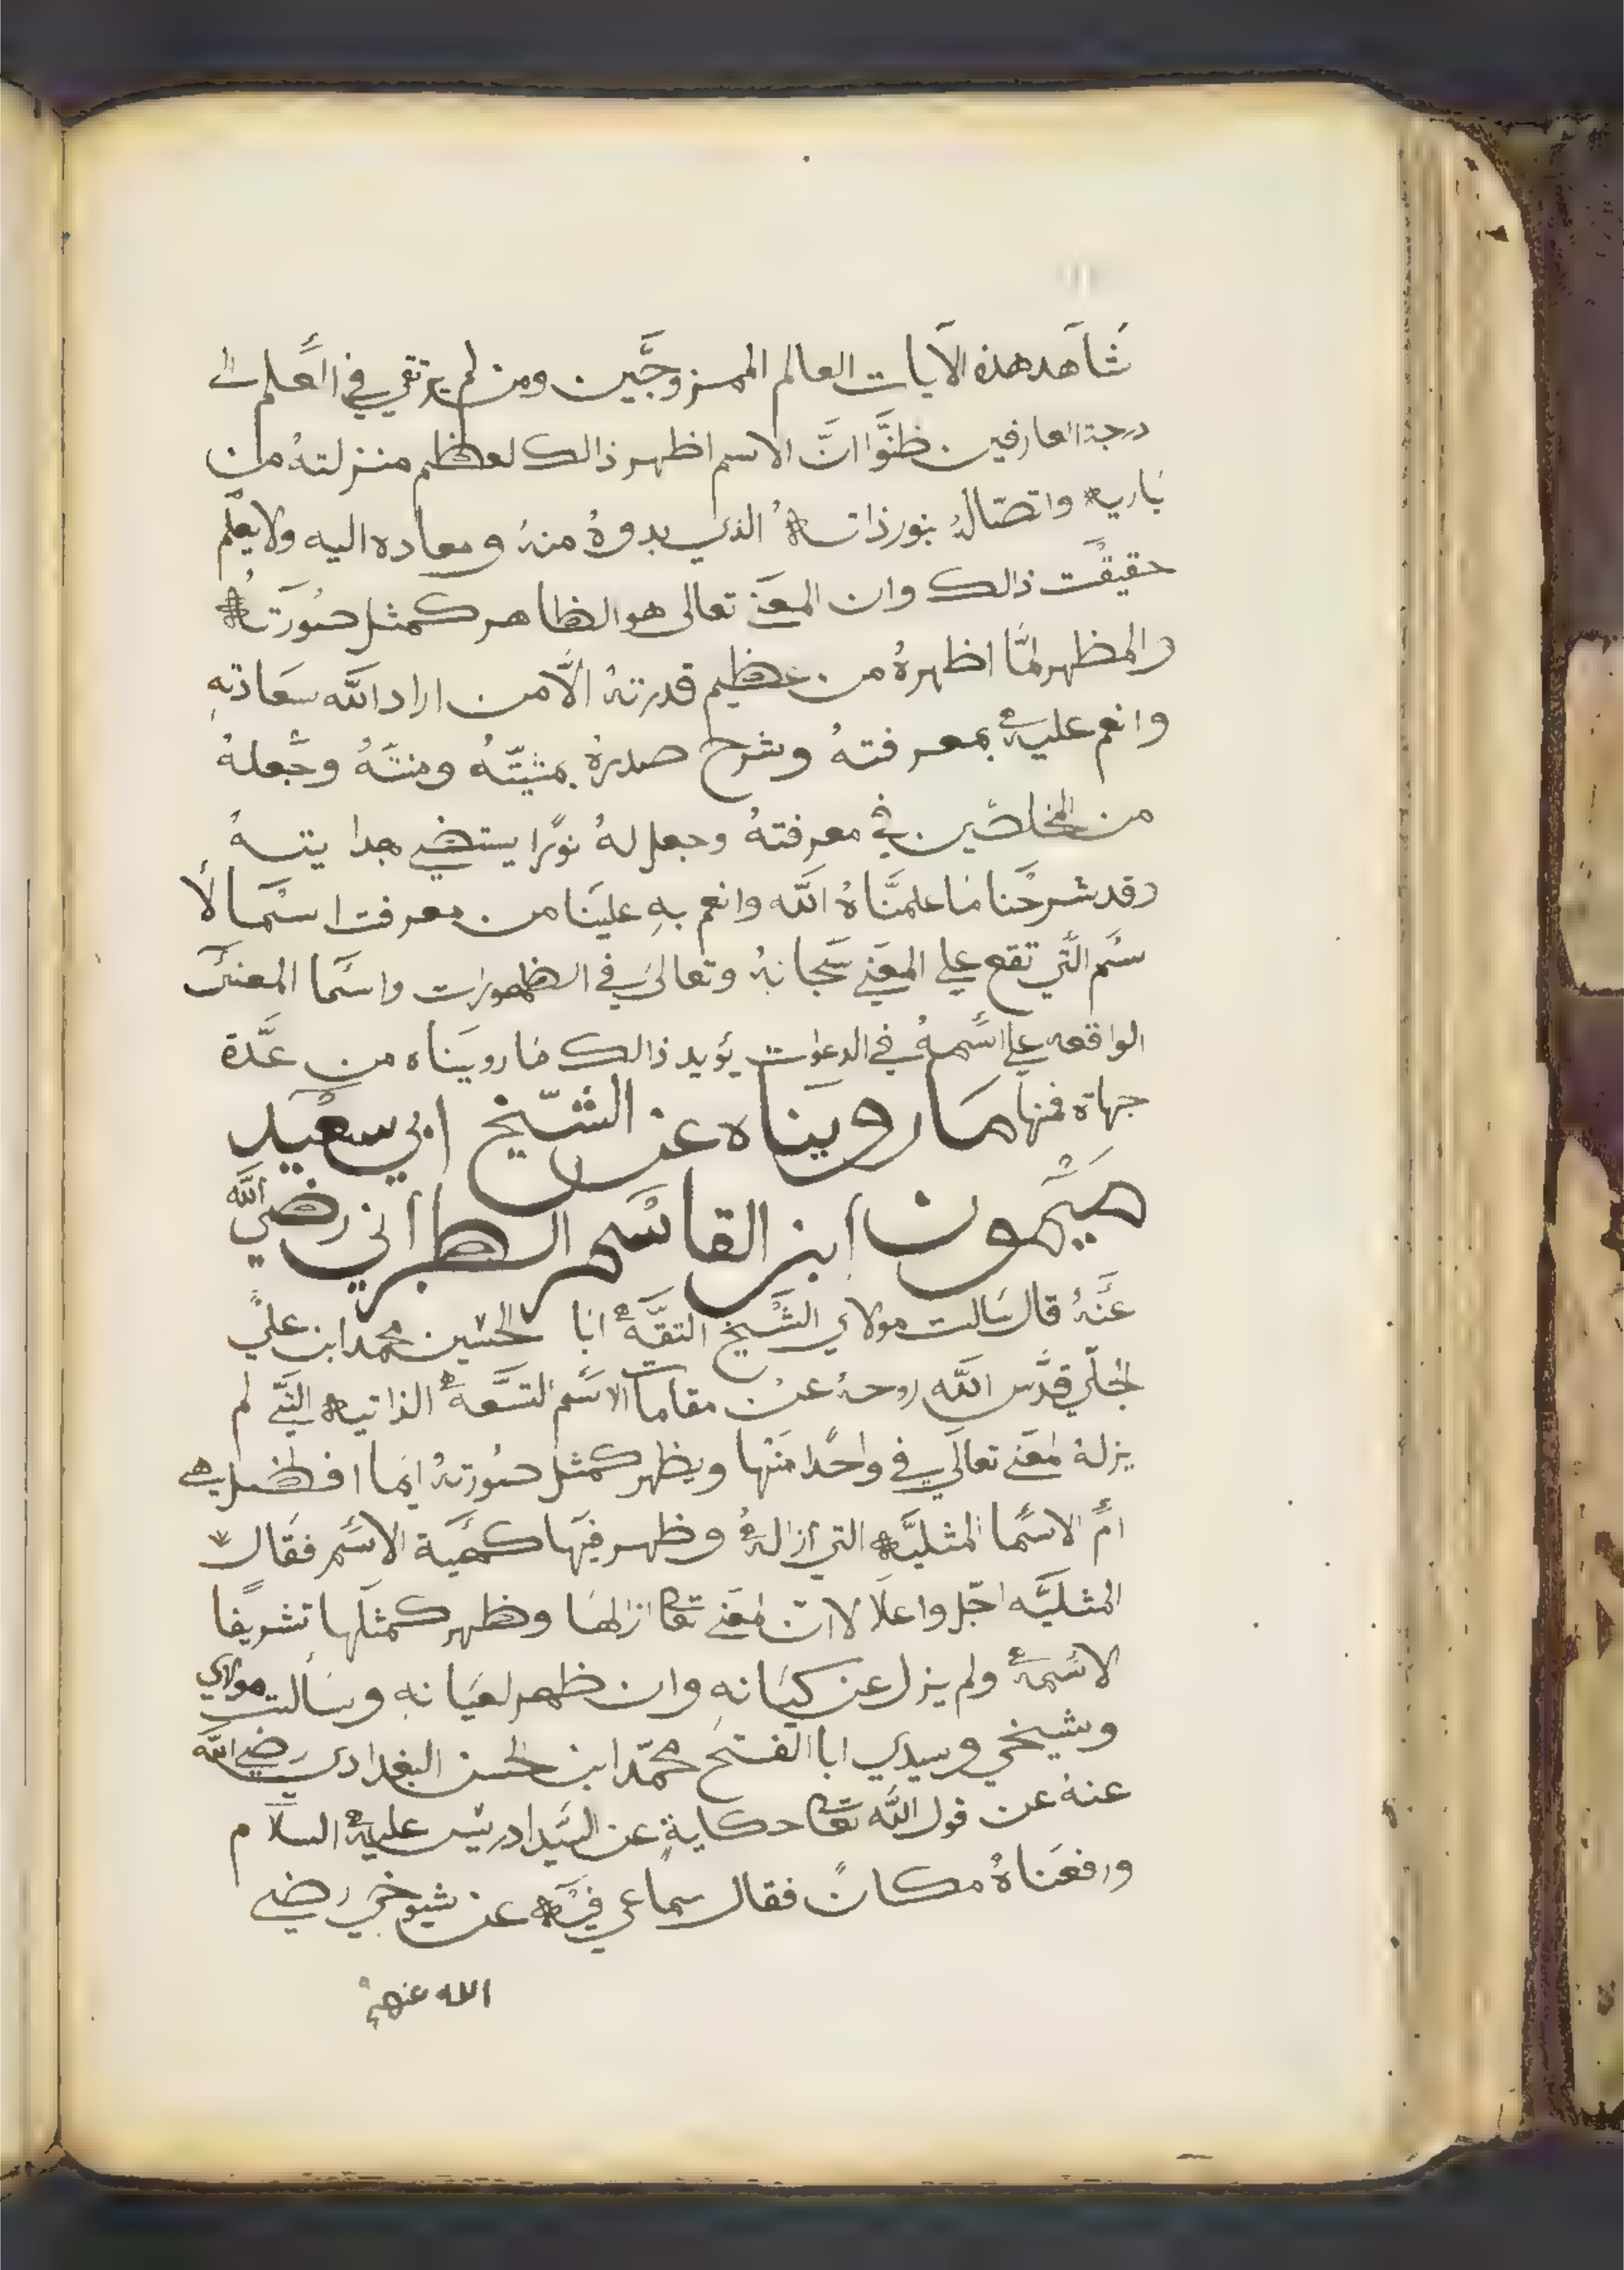 شاهد هذه الآيات العالم الممزوجين ومن لم يرتقي في العلم الى
درجة العارفين ظنوا ان الاسم اظهر ذالك لعظم منزلته من
باريه واتصاله بنور ذاته الذي بدوه منه ومعاده اليه ولا يعلم
حقيقت ذالك وان المعنى تعالى هو الظاهر كمثل صورته
والمظهر لما اظهره من عظيم قدرته الا من اراد الله سعادته
وانعم عليه بمعرفته وشرح صدره بمشيته ومنته وجعله
من المخلصين في معرفته وجعل له نورا يستضي بهدايته
وقد شرحنا ما علمناه الله وانعم به علينا من معرفت اسما الا
سم التي تقع علي المعني سبحانه وتعالى في الظهورات واسما المعنى
الواقعه علي اسمه في الدعوات يؤيد ذالك ما رويناه من عدة
جهاة فمنها ما رويناه عن الشيخ ابي سعيد
ميمون ابن القاسم الطبراني رضي الله
عنه قال سالت مولاي الشيخ الثقه ابا الحسين محمد ابن علي
الجلي قدس الله روحه عن مقامات الاسم التسعه الذاتيه التي لم
يزله المعني تعالى في واحدا منها ويظهر كمثل صورته ايما افضل هي
ام الاسما المثليه التي ازاله وظهر فيها كهية الاسم فقال
المثليه اجل واعلا لان المعني تعا ازالها وظهر كمثلها تشريفا
لاسمه ولم يزل عن كيانه وان ظهر لعيانه وسألت مولاي
وشيخي وسيدي ابا الفتح محمد ابن الحسن البغدادي رضي الله
عنه عن قول الله تعا حكاية عن السيد ادريس عليه السلام
ورفعناه مكانا فقال سماعي فيه عن شيوخي رضي
الله عنهم